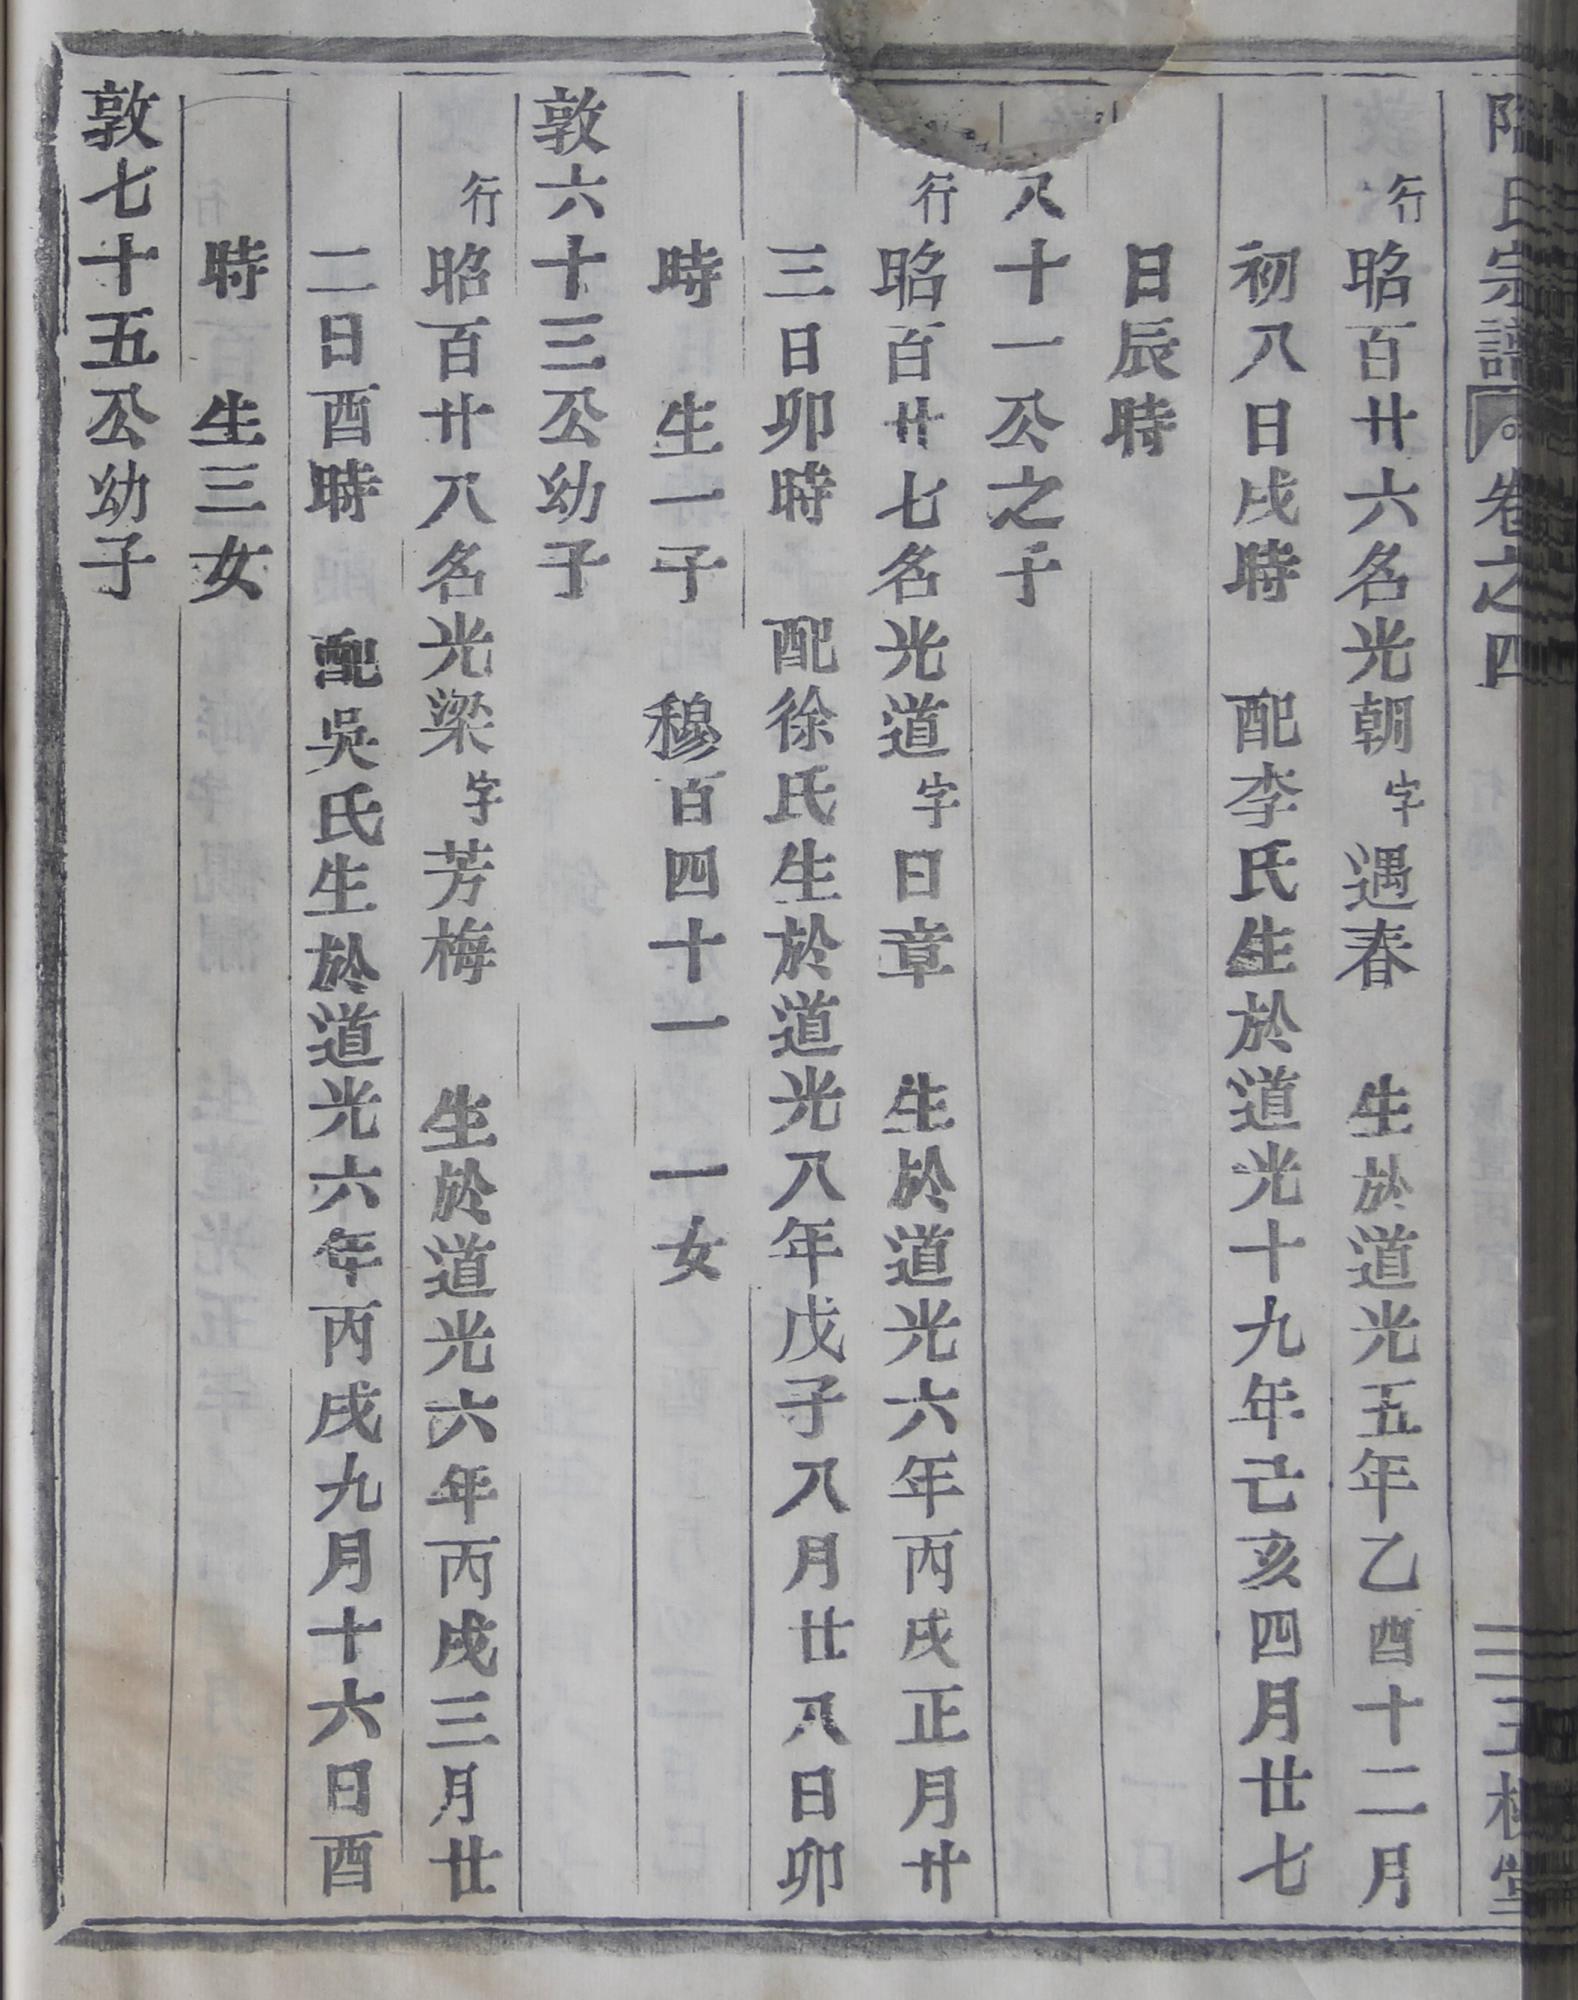 氏宗譜 卷之四
行昭百廿六名光朝字遇春 生於道光五年乙酉十二月
初八日戌時 配李氏生於道光十九年己亥四月廿七
日辰時
八十一公之子
行昭百廿七名光道字日章 生於道光六年丙戌正月廿
三日卯時 配徐氏生於道光八年戊子八月廿八日卯
時 生一子 穆百四十一 一女
敦六十三公幼子
行昭百廿八名光梁字芳梅 生於道光六年丙戌三月廿
二日酉時 配吳氏生於道光六年丙戌九月十六日酉
時 生三女
敦七十五公幼子